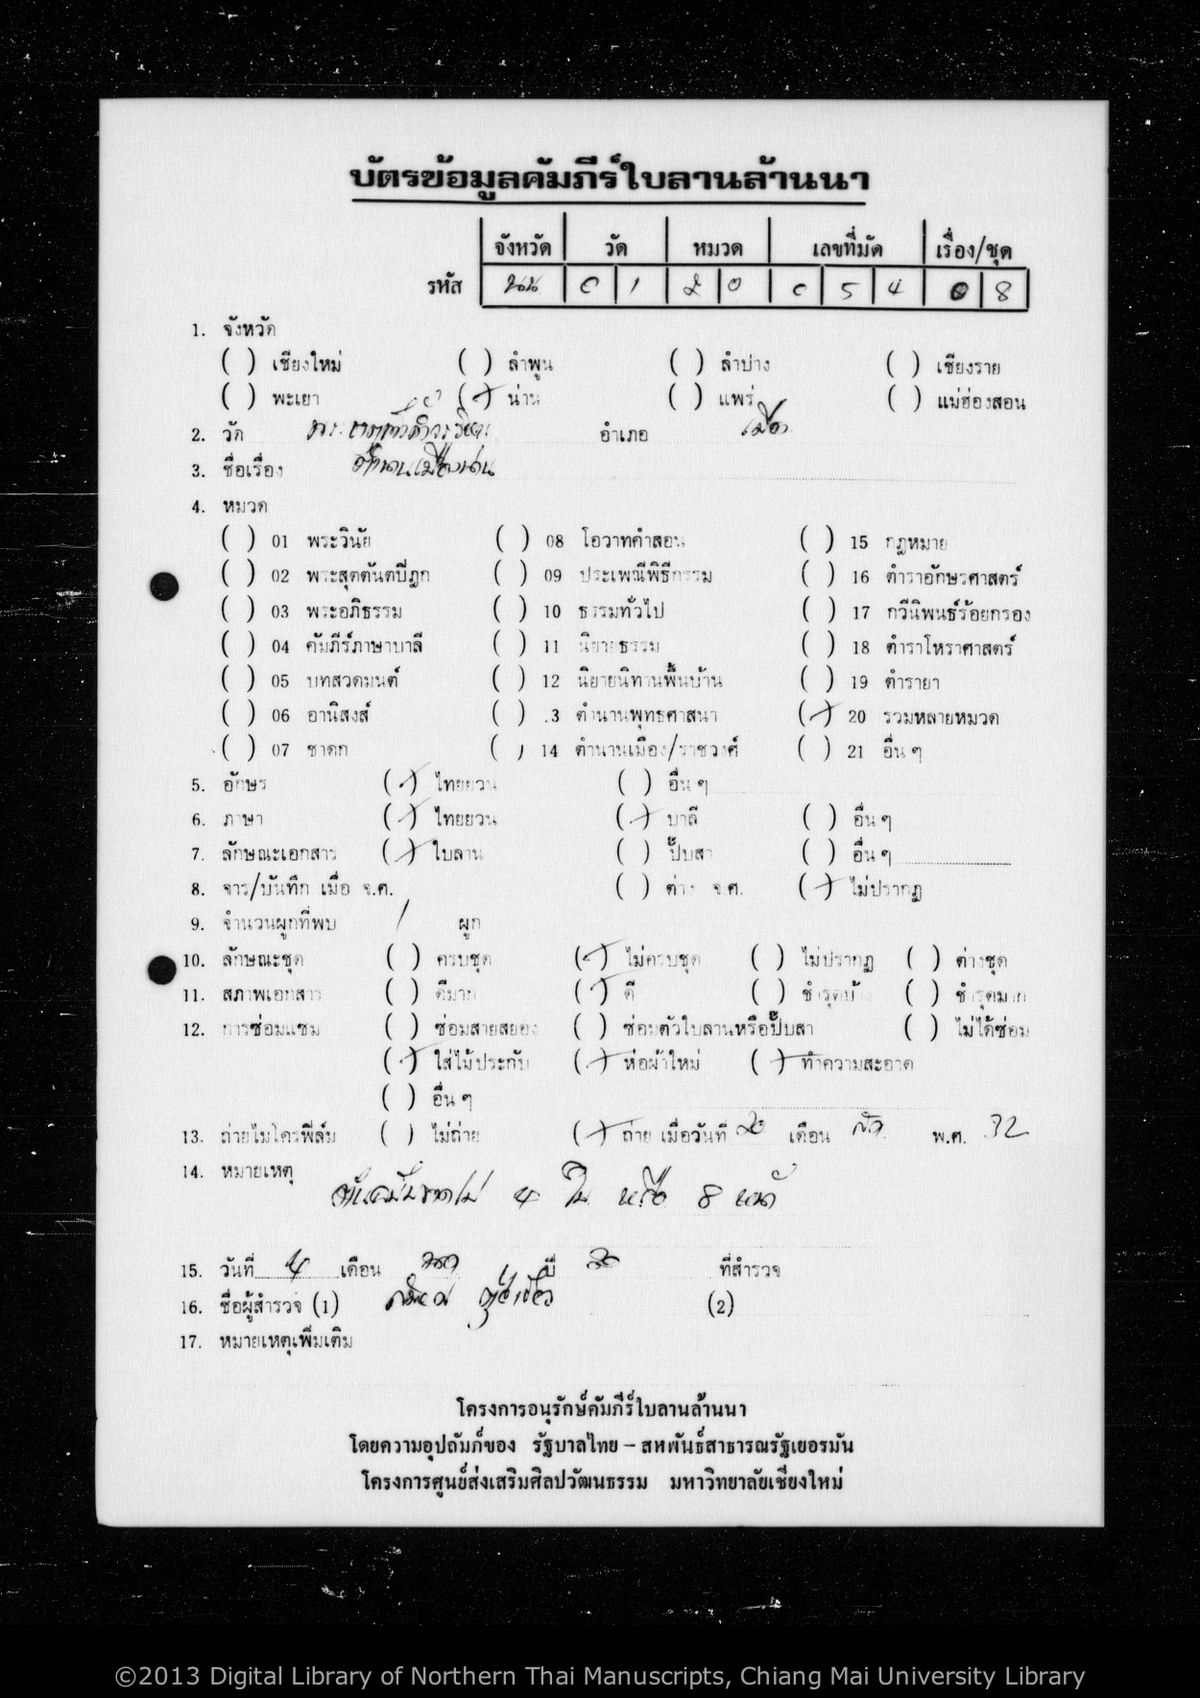 บัตรข้อมูลคัมภีร์ใบลานล้านนา
จังหวัด วัด หมวด เลขที่มัด เรื่อง/ชุด
รหัส นน 0 1 2 0 0 5 4 0 8
1. จังหวัด
( ) เชียงใหม่ ( ) ลำพูน ( ) ลำปาง ( ) เชียงราย
( ) พะเยา (/) น่าน ( ) แพร่ ( ) แม่ฮ่องสอน
2. วัด อำเภอ เมือง
3. ชื่อเรื่อง ตำนานเมืองน่าน
4. หมวด
( ) 01 พระวินัย ( ) 08 โอวาทคำสอน ( ) 15 กฎหมาย
( ) 02 พระสุตตันตปิฎก ( ) 09 ประเพณีพิธีกรรม ( ) 16 ตำราอักษรศาสตร์
( ) 03 พระอภิธรรม ( ) 10 ธรรมทั่วไป ( ) 17 กวีนิพนธ์ร้อยกรอง
( ) 04 คัมภีร์ภาษาบาลี ( ) 11 นิยายธรรม ( ) 18 ตำราโหราศาสตร์
( ) 05 บทสวดมนต์ ( ) 12 นิยายนิทานพื้นบ้าน ( ) 19 ตำรายา
( ) 06 อานิสงส์ ( ) 13 ตำนานพุทธศาสนา (/) 20 รวมหลายหมวด
( ) 07 ชาดก ( ) 14 ตำนานเมือง/ราชวงศ์ ( ) 21 อื่น ๆ
5. อักษร (/) ไทยยวน ( ) อื่น ๆ
6. ภาษา (/) ไทยยวน (/) บาลี ( ) อื่น ๆ
7. ลักษณะเอกสาร (/) ใบลาน ( ) ปั๊บสา ( ) อื่น ๆ
8. จาร/บันทึก เมื่อ จ.ศ. ( ) ต่าง จ.ศ. (/) ไม่ปรากฏ
9. จำนวนผูกที่พบ 1 ผูก
10. ลักษณะชุด ( ) ครบชุด (/) ไม่ครบชุด ( ) ไม่ปรากฏ ( ) ต่างชุด
11. สภาพเอกสาร ( ) ดีมาก (/) ดี ( ) ชำรุดบ้าง ( ) ชำรุดมาก
12. การซ่อมแซม ( ) ซ่อมสายสยอง ( ) ซ่อมตัวใบลานหรือปั๊บสา ( ) ไม่ได้ซ่อม
(/) ใส่ไม้ประกับ (/) ห่อผ้าใหม่ (/) ทำความสะอาด
( ) อื่น ๆ
13. ถ่ายไมโครฟิล์ม ( ) ไม่ถ่าย (/) ถ่าย เมื่อวันที่ เดือน พ.ศ. 32
14. หมายเหตุ
4 ใบ หรือ 8 หน้า
15. วันที่ 4 เดือน ปี ที่สำรวจ
16. ชื่อผู้สำรวจ (1) (2)
17. หมายเหตุเพิ่มเติม
โครงการอนุรักษ์คัมภีร์ใบลานล้านนา
โดยความอุปถัมภ์ของ รัฐบาลไทย – สหพันธ์สาธารณรัฐเยอรมัน
โครงการศูนย์ส่งเสริมศิลปวัฒนธรรม มหาวิทยาลัยเชียงใหม่
©2013 Digital Library of Northern Thai Manuscripts, Chiang Mai University Library